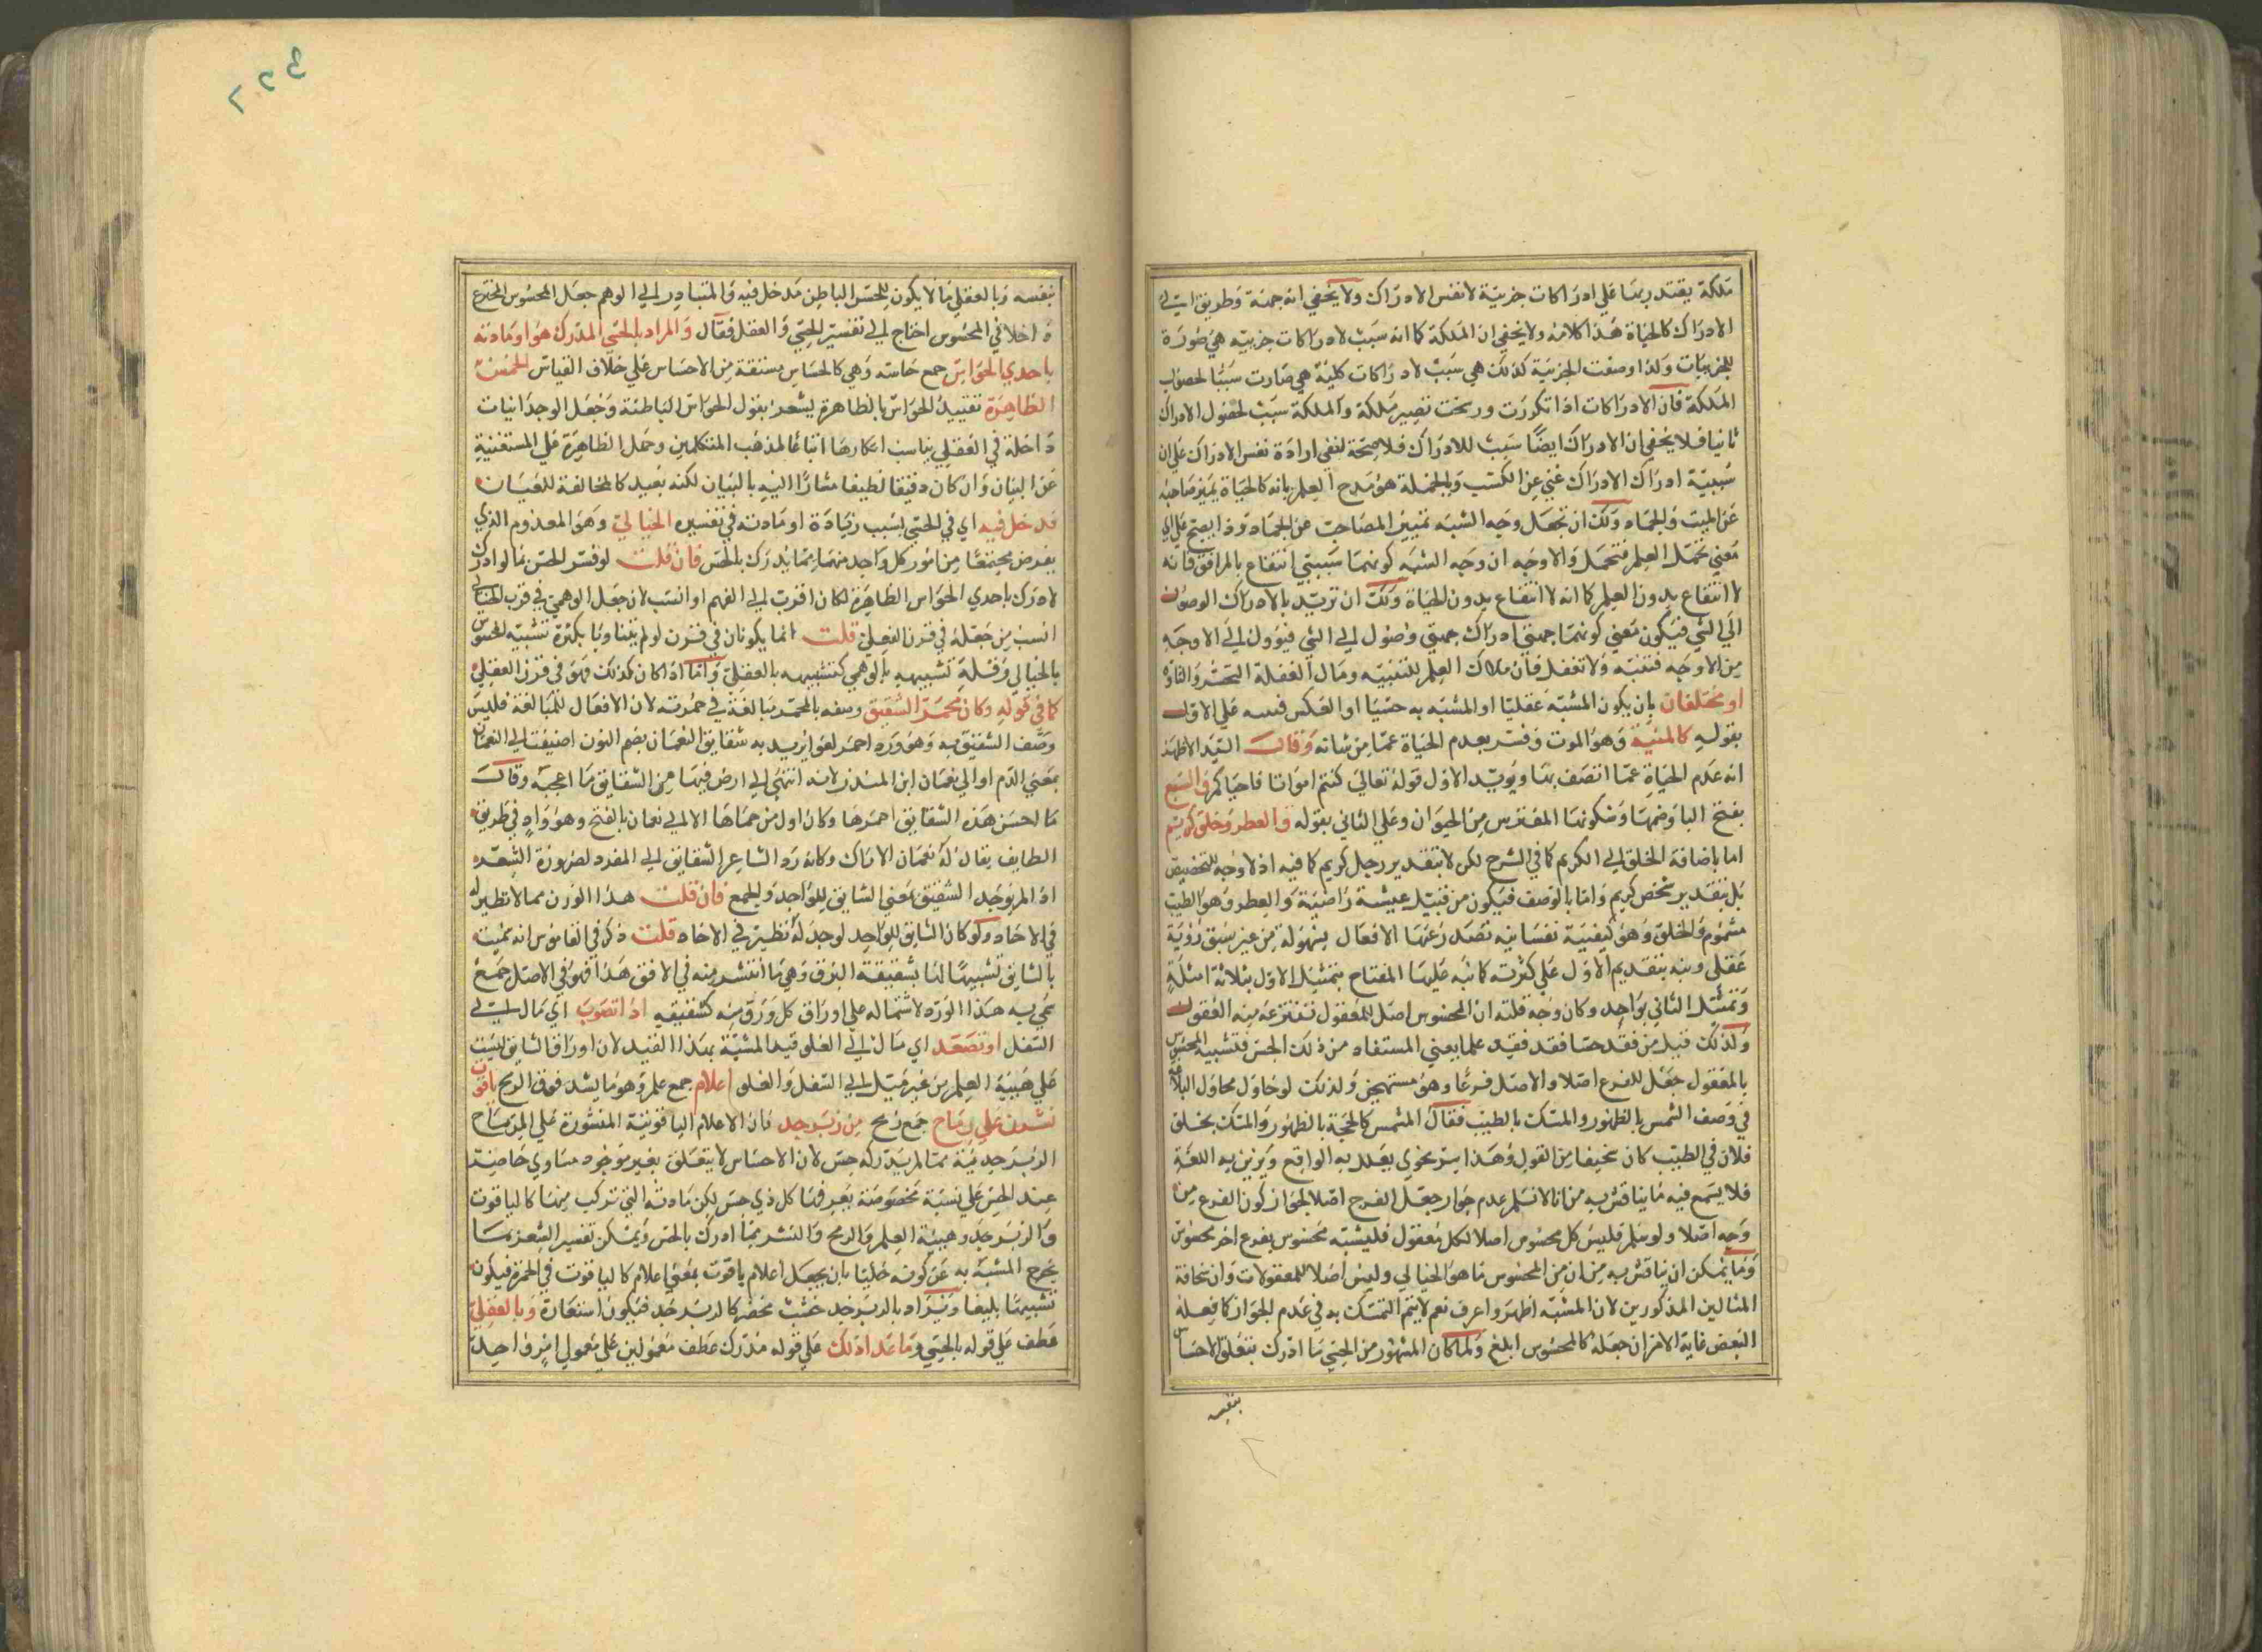 ملكة يقتدر بها علي ادراكات جزئية لا نفس الادراك ولا يخفي انه جهة وطريق الي
الادراك كالحياة هذا كلامه ولا يخفي ان الملكة كما انه سبب لادراكات جزئية هي صورة
للجزئيات ولذا وصفت الجزئية كذلك هي سبب لادراكات كلية هي صارت سببا لحصول
الملكة فان الادراكات اذا تكررت ورسخت تصير ملكة والملكة سبب لحصول الادراك
ثانيا فلا يخفي ان الادراك ايضا سبب للادراك فلا صحة لنفي ارادة نفس الادراك علي ان
سببية ادراك الادراك غني عن الكسب وبالجملة هو مدح العلم بانه كالحياة يميز صاحبه
عن الميت والجماد ولك ان تجعل وجه الشبه تمييز المصاحب عن الجماد وذا يصح علي اي
معني تحمل العلم فتحمل والاوجه ان وجه الشبه كونهما سببي انتفاع بالمرافق فانه
لا انتفاع بدون العلم كما انه لا انتفاع بدون الحياة ولك ان تريد بالادراك الوصول
الي الشي فيكون معني كونهما جهتي ادراك جهتي وصول الي الشي فيؤول الي الاوجه
من الاوجه فتنبه ولا تغفل فان ملاك العلم للتنبيه ومال الغفلة التحسر والتاوه
او مختلفان بان يكون المشبه عقليا او المشبه به حسيا او العكس فنبه علي الاول
بقوله كالمنية وهو الموت وفسر بعدم الحياة عما من شانه وقال السيد الاظهر
انه عدم الحياة عما اتصف بها ويؤيد الاول قوله تعالي كنتم امواتا فاحياكم والسبع
بفتح البا وضمها وسكونها المفترس من الحيوان وعلي الثاني بقوله والعطر وخلق كريم
اما باضافة الخلق الي الكريم كما في الشرح لكن لا بتقدير رجل كريم كما فيه اذ لا وجه للتخصيص
بل بتقدير شخص كريم واما بالوصف فيكون من قبيل عيشة راضية والعطر وهو الطيب
مشموم والخلق وهو كيفية نفسانية تصدر عنها الافعال بسهولة من غير سبق رؤية
عقلي ونبه بتقديم الاول علي كثرته كما نبه عليها المفتاح بتمثيل الاول بثلاثة امثلة
وتمثيل الثاني بواحد وكان وجه قلته ان المحسوس اصل للمعقول تنتزعه منه العقول
ولذلك قيل من فقد حسا فقد فقد علما يعني المستفاد من ذلك الحس فتشبيه المحسوس
بالمعقول جعل للفرع اصلا والاصل فرعا وهو مستهجن ولذلك لو حاول محاول البلاغة
في وصف الشمس بالظهور والمسك بالطيب فقال الشمس كالحجة بالظهور والمسك بخلق
فلان في الطيب كان سخيفا من القول وهذا سر نحوي يعدل به الواقع ويزين به اللغة
فلا يسمع فيه ما يناقش به من انا لا نسلم عدم جواز جعل الفرع اصلا لجواز كون الفرع من
وجه اصلا ولو سلم فليس كل محسوس اصلا لكل معقول فليشبه محسوس بفرع اخر محسوس
وما يمكن ان يناقش به من ان من المحسوس ما هو الخيالي وليس اصلا للمعقولات وان سخافة
المثالين المذكورين لان المشبه اظهر واعرف نعم لا يتم التمسك به في عدم الجواز كما فعله
البعض غاية الامر ان جعله كالمحسوس ابلغ ولما كان المشهور من الحسي ما ادرك بتعلق الاحساس
بنفسه
٣٢٢
بنفسه وبالعقلي ما لا يكون للحس الباطن مدخل فيه والمتبادر الي الوهم جعل المحسوس المخترع
داخلا في المحسوس احتاج الي تفسير الحسي والعقل فقال والمراد بالحسي المدرك هو او مادته
باحدي الحواس جمع حاسة وهي كالحساس مشتقة من الاحساس علي خلاف القياس الخمس
الظاهرة تقييد الحواس بالظاهرة يشعر بقول الحواس الباطنة وجعل الوجدانيات
داخلة في العقلي يناسب انكارها اتباعا لمذهب المتكلمين وحمل الظاهرة علي المستغنية
عن البيان وان كان دقيقا لطيفا مشارا اليه بالبيان لكنه بعيد كالمخالفة للعيان
فدخل فيه اي في الحسي بسبب زيادة او مادته في تفسيره الخيالي وهو المعدوم الذي
يفرض مجتمعا من امور كل واحد منها مما يدرك بالحس فان قلت لو فسر الحس بما لو ادرك
لادرك باحدي الحواس الظاهرة لكان اقرب الي الفهم او انسب لان جعل الوهمي في قرب الخيالي
انسب من جعله في قرن العقلي قلت انما يكونان في قرن لو لم يتفاوتا بكثرة تشبيه المحسوس
بالخيالي وقلة تشبيهه بالوهمي كتشبيهه بالعقلي واما اذا كان كذلك فهو في قرن العقلي
كما في قوله وكان محمر الشقيق وصفه بالمحمر مبالغة في حمرته لان الافعال للمبالغة فليس
وصف الشقيق به وهو ورد احمر لغوا يريد به شقايق النعمان بضم النون اضيفت الي النعمان
بمعني الدم او الي نعمان ابن المنذر لانه انتهي الي ارض فيها من الشقايق ما اعجبه وقال
ما احسن هذه الشقايق احمرها وكان اول من حماها الا الي نعمان بالفتح وهو واد في طريق
الطايف يقال له نعمان الاراك وكانه رد الشاعر الشقايق الي المفرد لضرورة الشعر
اذ لم يوجد الشقيق بمعني الشايق للواحد والجمع فان قلت هذا الوزن مما لا نظير له
في الاحاد ولو كان الشايق للواحد لوجد له نظير في الاحاد قلت ذكر في القاموس انه سميت
بالشايق تشبيها لها بشقيقة البرق وهي ما انتشر منه في الافق هذا فهو في الاصل جمع
سمي به هذا الورد لاشتماله علي اوراق كل ورق منه كشقيقه اذا تصوب اي مال الي
السفل او تصعد اي مال الي العلو قيد المشبه بهذا القيد لان اوراق الشايق ليست
علي هيئة العلم من غير ميل الي السفل والعلو اعلام جمع علم وهو ما يشد فوق الرمح ياقوت
نشرن علي رماح جمع رمح من زبرجد فان الاعلام الياقوتية المنشورة علي الرماح
الزبرجدية مما لم يدركه حس لان الاحساس لا يتعلق بغير موجود مساوي حاضر
عند الحس علي نسبة مخصوصة يعرفها كل ذي حس لكن مادته التي تركب منها كالياقوت
والزبرجد وهيئة العلم والرمح والنشر مما ادرك بالحس ويمكن تفسير الشعر بما
يخرج المشبه به عن كونه خياليا بان يجعل اعلام ياقوت بمعني اعلام كالياقوت في الحمرة فيكون
تشبيها بليغا ويراد بالزبرجد خشب مخضر كالزبرجد فيكون استعارة وبالعقلي
عطف علي قوله بالحسي وما عدا ذلك علي قوله مدرك عطف معمولين علي معمولي امر واحد